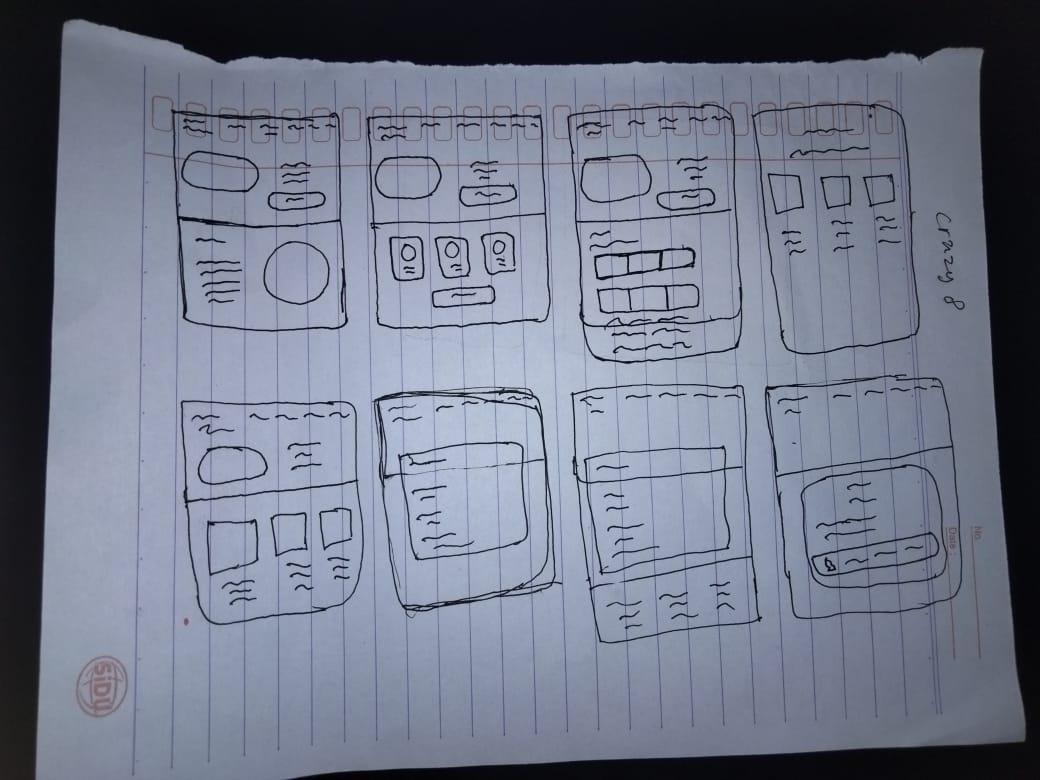 crazy 8
No
Date:
SiDU